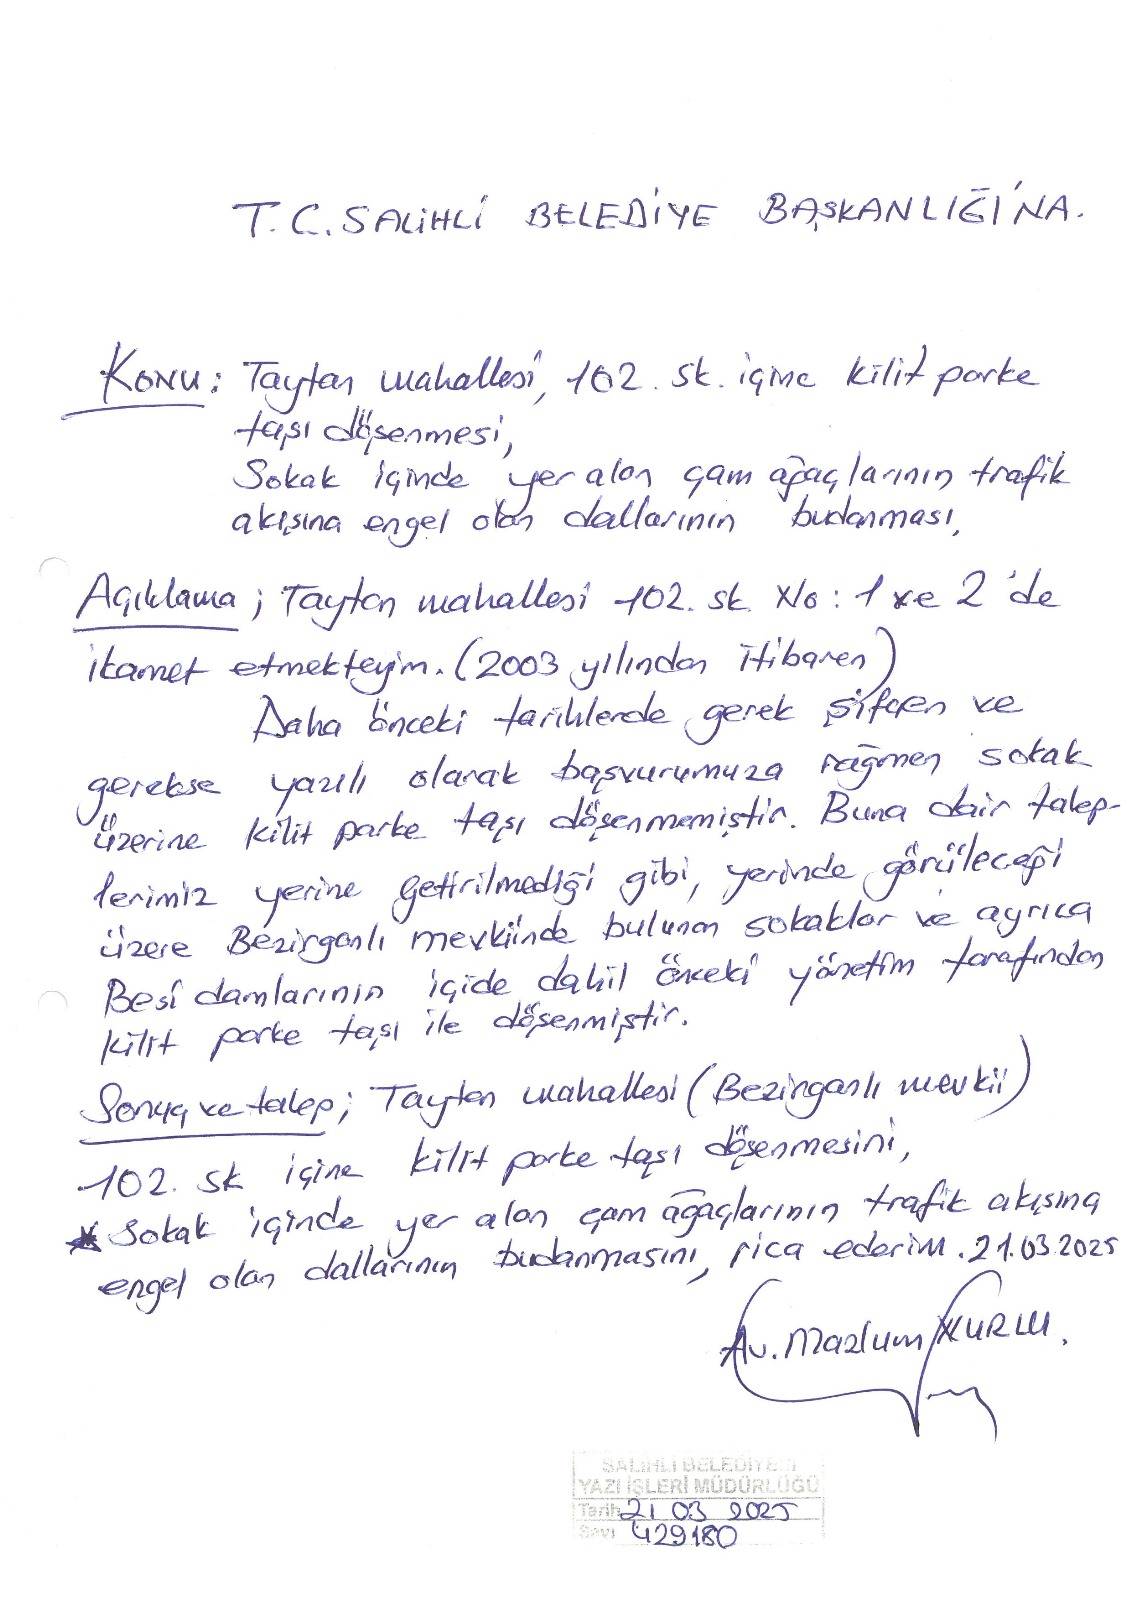 T.C. SALİHLİ BELEDİYE BAŞKANLIĞI'NA.
KONU: Taytan mahallesi, 102. sk. içine kilit parke
taşı döşenmesi,
Sokak içinde yer alan çam ağaçlarının trafik
akışına engel olan dallarının budanması,
Açıklama; Taytan mahallesi 102. sk. No: 1 ve 2'de
ikamet etmekteyim. (2003 yılından itibaren)
Daha önceki tarihlerde gerek şifaen ve
gerekse yazılı olarak başvurumuza rağmen sokak
üzerine kilit parke taşı döşenmemiştir. Buna dair talep-
lerimiz yerine getirilmediği gibi, yerinde görüleceği
üzere Bezirganlı mevkiinde bulunan sokaklar ve ayrıca
Besi damlarının içide dahil önceki yönetim tarafından
kilit parke taşı ile döşenmiştir.
Sonuç ve talep; Taytan mahallesi (Bezirganlı mevkii)
102. sk içine kilit parke taşı döşenmesini,
* Sokak içinde yer alan çam ağaçlarının trafik akışına
engel olan dallarının budanmasını, rica ederim. 21.03.2025
Av. Mazlum
SALİHLİ BELEDİYESİ
YAZI İŞLERİ MÜDÜRLÜĞÜ
Tarih 21 03 2025
Sayı 429180